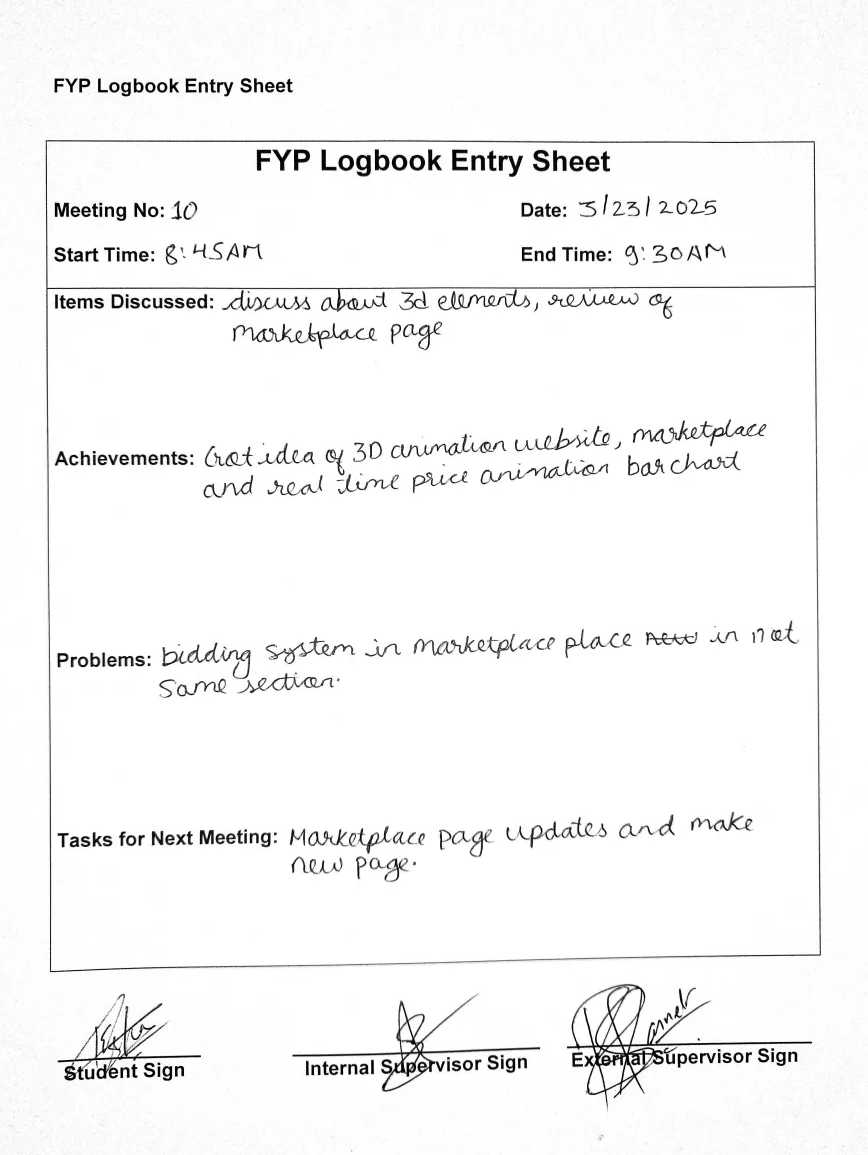 FYP Logbook Entry Sheet
FYP Logbook Entry Sheet
Meeting No: 10 Date: 3/23/2025
Start Time: 8:45AM End Time: 9:30AM
Items Discussed: discuss about 3d elements, review of
marketplace page
Achievements: Got idea of 3D animation website, marketplace
and real time price animation bar chart
Problems: bidding system in marketplace place new in not
same section.
Tasks for Next Meeting: Marketplace page updates and make
new page.
Student Sign Internal Supervisor Sign External Supervisor Sign